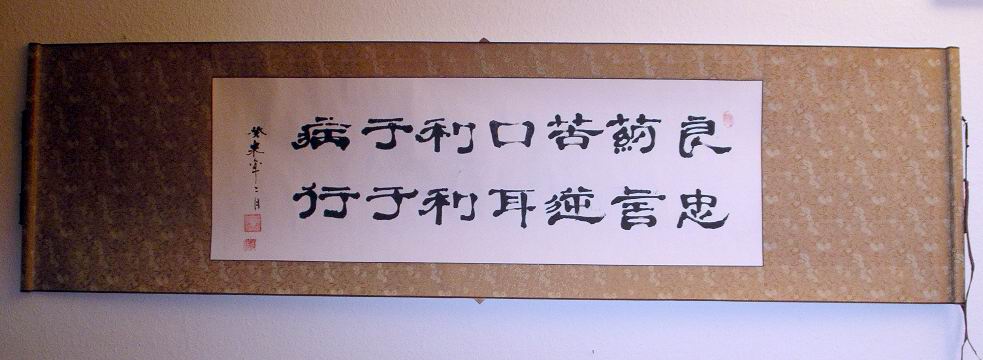 良葯苦口利于病
忠言逆耳利于行
癸未年二月